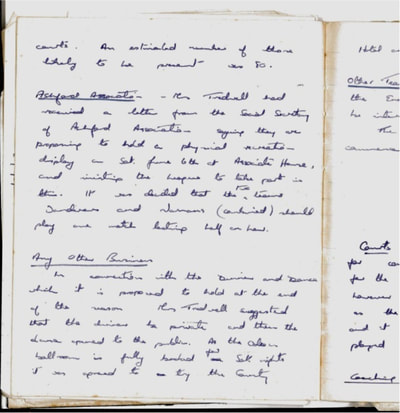 courts. An estimated number of those
likely to be present was 80.
Ashford Associates - Mrs Tradwell had
received a letter from the Social Secretary
of Ashford Associates saying they are
proposing to hold a physical recreation
display on Sat. June 6th at Associate House,
and inviting the league to take part in
this. It was decided that the two teams
and (combined) should
play one match lasting half an hour.
Any Other Business
In connection with the Dinner and Dance
which it is proposed to hold at the end
of the season Mrs Tradwell suggested
that the dinner be private and then the
dance opened to the public. As the
ballroom is fully booked for Sat nights
it was agreed to try the County
Hotel
Other Tea
the
he
The
Courts
for
for the
however
as the
and it
played
Coaching